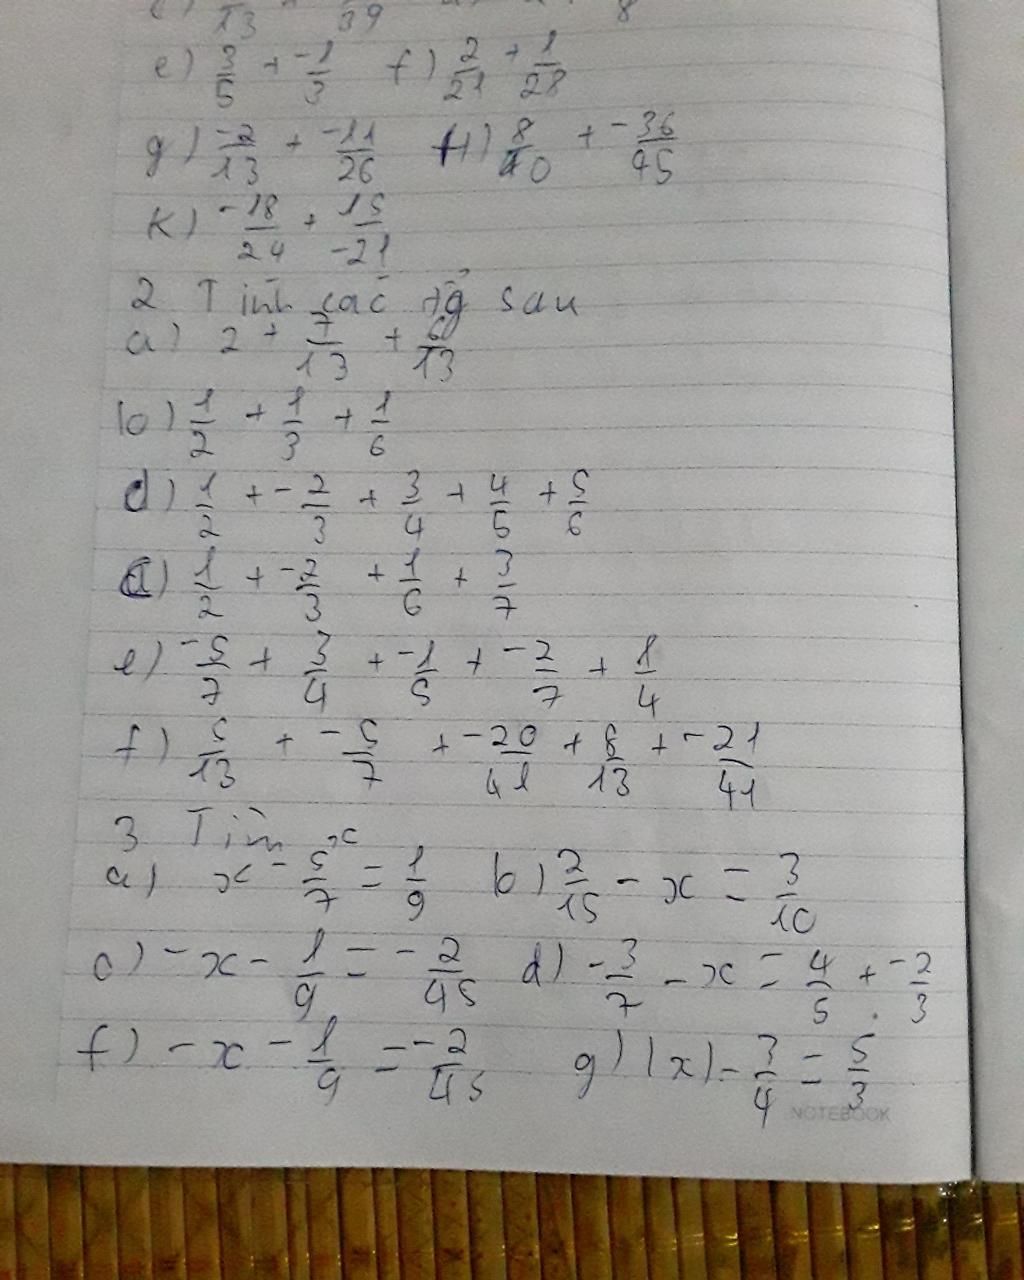 13 39 8
e) 3/5 + -1/3 f) 2/21 + 1/28
g) -2/13 + -11/26 H) 8/40 + -36/45
K) -18/24 + 15/-21
2 Tính các tổng sau
a) 2 + 7/13 + 6/13
b) 1/2 + 1/3 + 1/6
d) 1/2 + -2/3 + 3/4 + 4/5 + 5/6
d) 1/2 + -2/3 + 1/6 + 3/7
e) -5/7 + 3/4 + -1/5 + -2/7 + 1/4
f) 5/13 + -5/7 + -20/41 + 8/13 + -21/41
3 Tìm x
a) x - 5/7 = 1/9 b) 2/15 - x = 3/10
c) -x - 1/9 = -2/45 d) -3/7 - x = 4/5 + -2/3
f) -x - 1/9 = -2/45 g) (x) - 3/4 = 5/3
NOTEBOOK